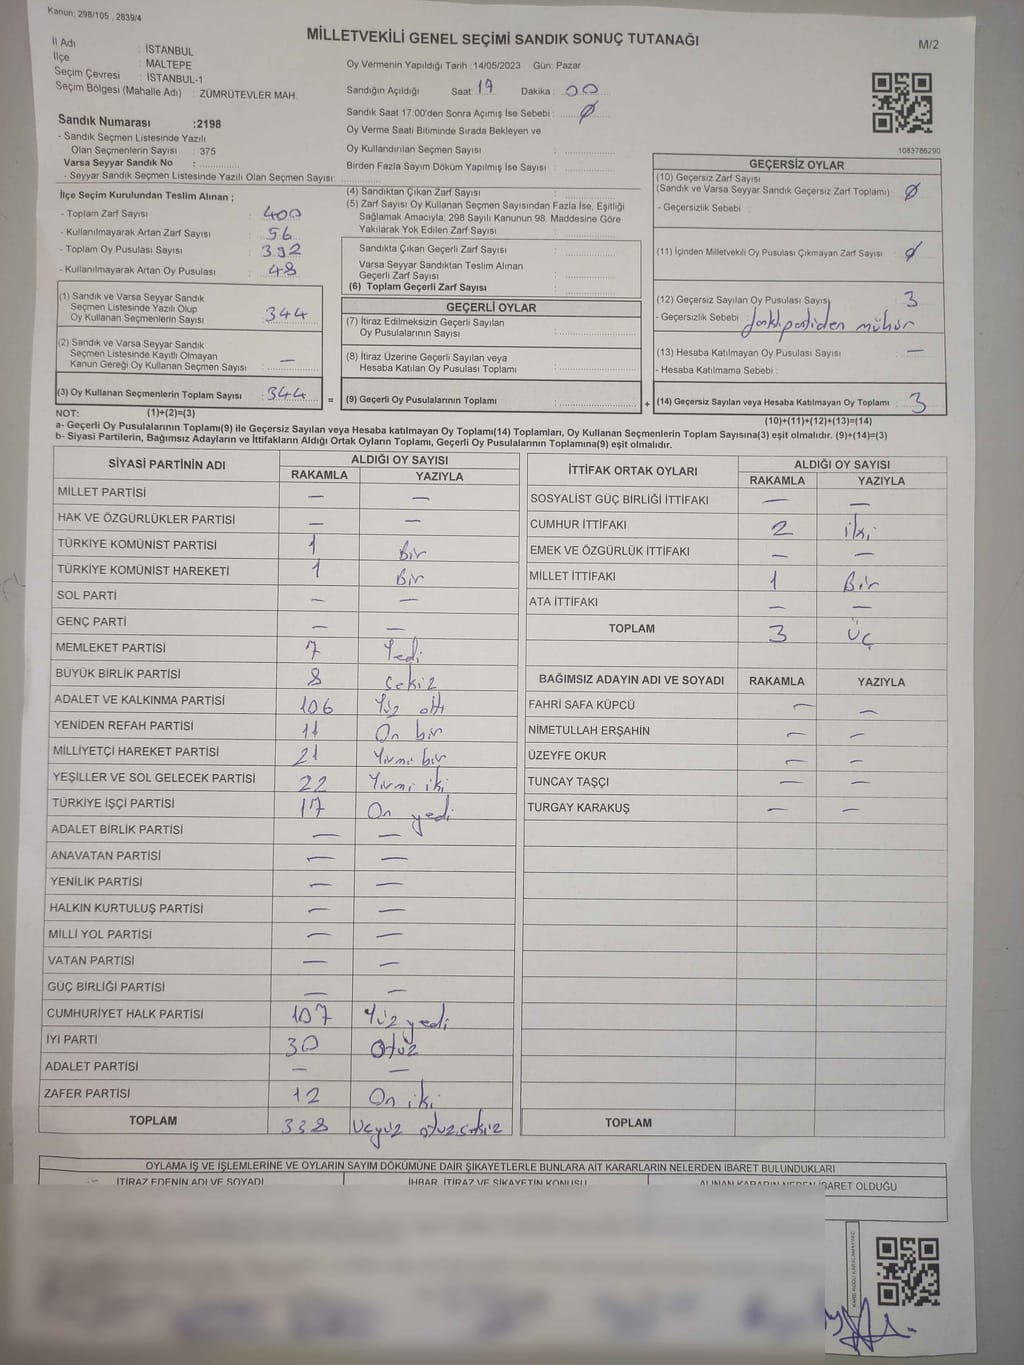 Kanun: 298/105 , 2839/4
MİLLETVEKİLİ GENEL SEÇİMİ SANDIK SONUÇ TUTANAĞI
M/2
İl Adı : İSTANBUL
İlçe : MALTEPE
Seçim Çevresi : İSTANBUL-1
Seçim Bölgesi (Mahalle Adı) : ZÜMRÜTEVLER MAH.
Sandık Numarası :2198
- Sandık Seçmen Listesinde Yazılı
Olan Seçmenlerin Sayısı : 375
Varsa Seyyar Sandık No :
- Seyyar Sandık Seçmen Listesinde Yazılı Olan Seçmen Sayısı:
Oy Vermenin Yapıldığı Tarih :14/05/2023 Gün: Pazar
Sandığın Açıldığı Saat : 17 Dakika : 00
Sandık Saat 17.00'den Sonra Açımış İse Sebebi : Ø
Oy Verme Saati Bitiminde Sırada Bekleyen ve
Oy Kullandırılan Seçmen Sayısı :
Birden Fazla Sayım Döküm Yapılmış İse Sayısı :
1083786290
İlçe Seçim Kurulundan Teslim Alınan ;
- Toplam Zarf Sayısı : 400
- Kullanılmayarak Artan Zarf Sayısı : 56
- Toplam Oy Pusulası Sayısı : 392
- Kullanılmayarak Artan Oy Pusulası : 48
(1) Sandık ve Varsa Seyyar Sandık
Seçmen Listesinde Yazılı Olup
Oy Kullanan Seçmenlerin Sayısı : 344
(2) Sandık ve Varsa Seyyar Sandık
Seçmen Listesinde Kayıtlı Olmayan
Kanun Gereği Oy Kullanan Seçmen Sayısı : —
(3) Oy Kullanan Seçmenlerin Toplam Sayısı : 344 =
(1)+(2)=(3)
(4) Sandıktan Çıkan Zarf Sayısı :
(5) Zarf Sayısı Oy Kullanan Seçmen Sayısından Fazla İse, Eşitliği
Sağlamak Amacıyla; 298 Sayılı Kanunun 98. Maddesine Göre
Yakılarak Yok Edilen Zarf Sayısı :
Sandıkta Çıkan Geçerli Zarf Sayısı :
Varsa Seyyar Sandıktan Teslim Alınan
Geçerli Zarf Sayısı :
(6) Toplam Geçerli Zarf Sayısı :
GEÇERLİ OYLAR
(7) İtiraz Edilmeksizin Geçerli Sayılan
Oy Pusulalarının Sayısı :
(8) İtiraz Üzerine Geçerli Sayılan veya
Hesaba Katılan Oy Pusulası Toplamı :
(9) Geçerli Oy Pusulalarının Toplamı : +
GEÇERSİZ OYLAR
(10) Geçersiz Zarf Sayısı
(Sandık ve Varsa Seyyar Sandık Geçersiz Zarf Toplamı) : Ø
- Geçersizlik Sebebi :
(11) İçinden Milletvekili Oy Pusulası Çıkmayan Zarf Sayısı : Ø
(12) Geçersiz Sayılan Oy Pusulası Sayısı 3
- Geçersizlik Sebebi : farklı partiden mühür
(13) Hesaba Katılmayan Oy Pusulası Sayısı : —
- Hesaba Katılmama Sebebi :
(14) Geçersiz Sayılan veya Hesaba Katılmayan Oy Toplamı : 3
(10)+(11)+(12)+(13)=(14)
NOT:
a- Geçerli Oy Pusulalarının Toplamı(9) ile Geçersiz Sayılan veya Hesaba katılmayan Oy Toplamı(14) Toplamları, Oy Kullanan Seçmenlerin Toplam Sayısına(3) eşit olmalıdır. (9)+(14)=(3)
b- Siyasi Partilerin, Bağımsız Adayların ve İttifakların Aldığı Ortak Oyların Toplamı, Geçerli Oy Pusulalarının Toplamına(9) eşit olmalıdır.
SİYASİ PARTİNİN ADI ALDIĞI OY SAYISI
RAKAMLA YAZIYLA
MİLLET PARTİSİ — —
HAK VE ÖZGÜRLÜKLER PARTİSİ — —
TÜRKİYE KOMÜNİST PARTİSİ 1 Bir
TÜRKİYE KOMÜNİST HAREKETİ 1 Bir
SOL PARTİ — —
GENÇ PARTİ — —
MEMLEKET PARTİSİ 7 Yedi
BÜYÜK BİRLİK PARTİSİ 8 Sekiz
ADALET VE KALKINMA PARTİSİ 106 Yüz altı
YENİDEN REFAH PARTİSİ 11 On bir
MİLLİYETÇİ HAREKET PARTİSİ 21 Yirmi bir
YEŞİLLER VE SOL GELECEK PARTİSİ 22 Yirmi iki
TÜRKİYE İŞÇİ PARTİSİ 17 On yedi
ADALET BİRLİK PARTİSİ — —
ANAVATAN PARTİSİ — —
YENİLİK PARTİSİ — —
HALKIN KURTULUŞ PARTİSİ — —
MİLLİ YOL PARTİSİ — —
VATAN PARTİSİ — —
GÜÇ BİRLİĞİ PARTİSİ — —
CUMHURİYET HALK PARTİSİ 107 Yüz yedi
İYİ PARTİ 30 Otuz
ADALET PARTİSİ — —
ZAFER PARTİSİ 12 On iki
TOPLAM 338 Üçyüz otuzsekiz
İTTİFAK ORTAK OYLARI ALDIĞI OY SAYISI
RAKAMLA YAZIYLA
SOSYALİST GÜÇ BİRLİĞİ İTTİFAKI — —
CUMHUR İTTİFAKI 2 iki
EMEK VE ÖZGÜRLÜK İTTİFAKI — —
MİLLET İTTİFAKI 1 Bir
ATA İTTİFAKI — —
TOPLAM 3 Üç
BAĞIMSIZ ADAYIN ADI VE SOYADI RAKAMLA YAZIYLA
FAHRİ SAFA KÜPCÜ — —
NİMETULLAH ERŞAHİN — —
ÜZEYFE OKUR — —
TUNCAY TAŞÇI — —
TURGAY KARAKUŞ — —
TOPLAM
OYLAMA İŞ VE İŞLEMLERİNE VE OYLARIN SAYIM DÖKÜMÜNE DAİR ŞİKAYETLERLE BUNLARA AİT KARARLARIN NELERDEN İBARET BULUNDUKLARI
İTİRAZ EDENİN ADI VE SOYADI İHBAR, İTİRAZ VE ŞİKAYETİN KONUSU ALINAN KARARIN NEDEN İBARET OLDUĞU